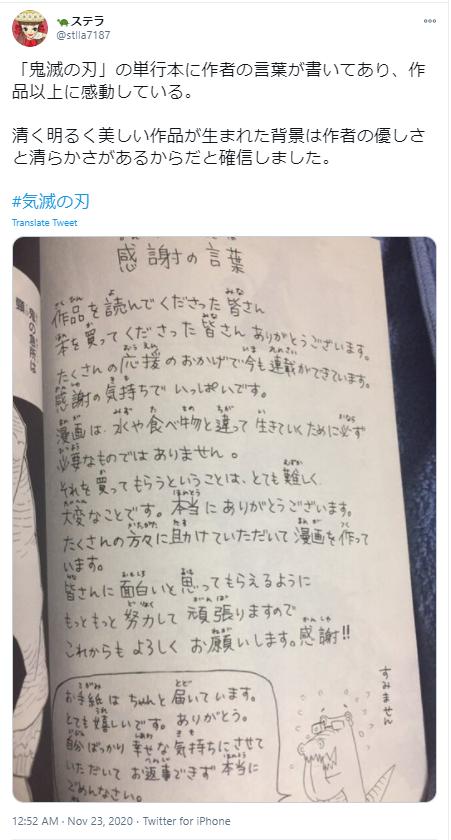 🐢ステラ
@stlla7187
「鬼滅の刃」の単行本に作者の言葉が書いてあり、作
品以上に感動している。
清く明るく美しい作品が生まれた背景は作者の優しさ
と清らかさがあるからだと確信しました。
#気滅の刃
Translate Tweet
感謝の言葉
作品を読んでくださった皆さん
本を買ってくださった皆さんありがとうございます。
たくさんの応援のおかげで今も連載ができています。
感謝の気持ちでいっぱいです。
漫画は、水や食べ物と違って生きていくために必ず
必要なものではありません。
それを買ってもらうということは、とても難しく
大変なことです。本当にありがとうございます。
たくさんの方々に助けていただいて漫画を作って
います。
皆さんに面白いと思ってもらえるように
もっともっと努力して頑張りますので
これからもよろしくお願いします。感謝!!
お手紙はちゃんと届いています。
とても嬉しいです。ありがとう。
自分ばっかり幸せな気持ちにさせて
いただいてお返事できず本当に
ごめんなさい。
すみません
の急所は
12:52 AM · Nov 23, 2020 · Twitter for iPhone